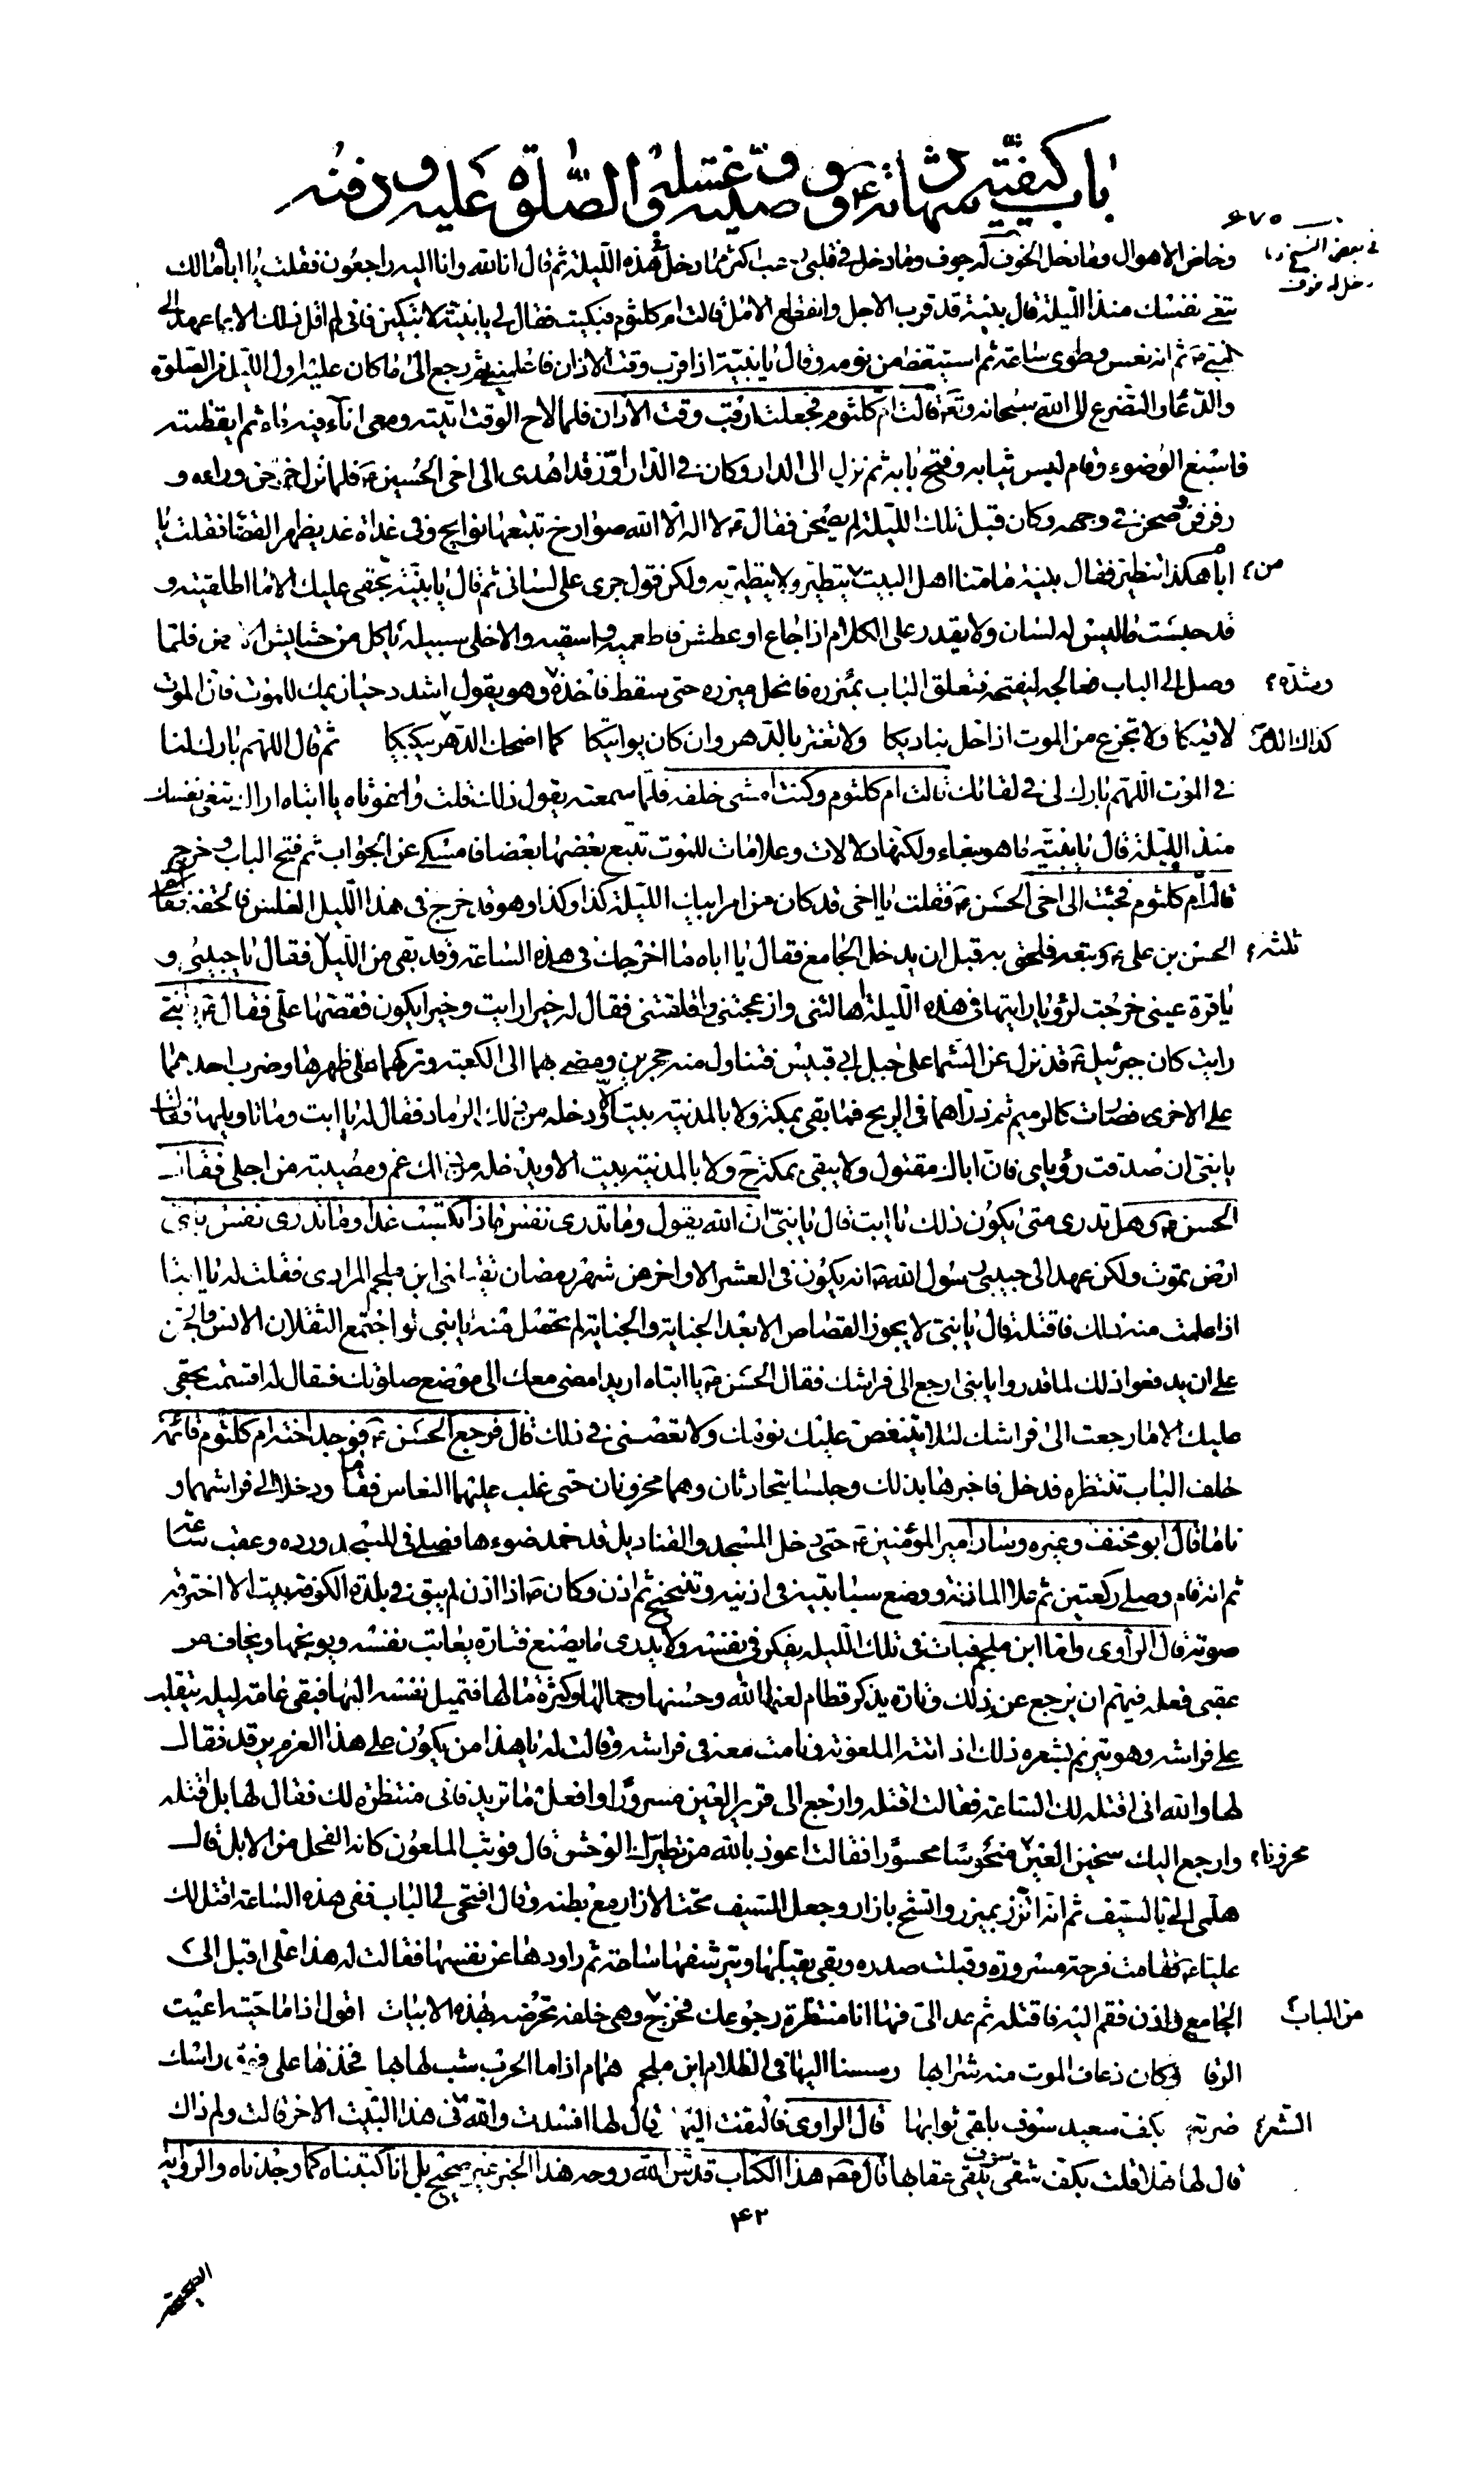 باب كيفيّة شهادته ع ووصيّته وغسله والصّلوة عليه ودفنه
٦٧٥
في بعض النسخ وما دخل له خوف
وخاض الاهوال وما دخل الخوف له جوف وما دخل في قلبي رعب اكثر مما دخل هذه الليلة ثم قال انا لله وانا اليه راجعون فقلت يا اباه مالك
تنعى نفسك منذ الليلة قال بنية قد قرب الاجل وانقطع الامل قالت ام كلثوم فبكيت فقال لي يا بنية لا تبكين فاني لم اقل ذلك الا بما عهد الي
النبي ص ثم انه نعس وطوى ساعة ثم استيقظ من نومه وقال يا بنية اذا قرب وقت الاذان فاعلميني ثم رجع الى ما كان عليه اول الليل من الصلوة
والدعاء والتضرع الى الله سبحانه وتع قالت ام كلثوم فجعلت ارقب وقت الاذان فلما لاح الوقت اتيته ومعي اناء فيه ماء ثم ايقظته
فاسبغ الوضوء وقام لبس ثيابه وفتح بابه ثم نزل الى الدار وكان في الدار اوز قد اهدى الى اخي الحسين ع فلما نزل خرجن وراءه و
رفرفن وصحن في وجهه وكان قبل تلك الليلة لم يصحن فقال ع لا اله الا الله صوارخ تتبعها نوايح وفي غداة غد يظهر القضا فقلت يا
اباه هكذا تتطير فقال بنية ما منا اهل البيت من يتطير ولا يتطير به ولكن قول جرى على لساني ثم قال يا بنية بحقي عليك الا ما اطلقتيه و
من
قد حبست ما ليس له لسان ولا يقدر على الكلام اذا جاع او عطش فاطعميه واسقيه والا خلى سبيله ياكل من حشايش الارض فلما
وصل الى الباب فعالجه ليفتحه فتعلق الباب بمئزره فانحل ميزره حتى سقط فاخذه وهو يقول اشدد حيازيمك للموت فان الموت
وشدّه
لاقيكا ولا تجزع من الموت اذا حل بناديكا ولا تغتر بالدهر وان كان يواتيكا كما اضحك الدهر يبكيكا ثم قال اللهم بارك لنا
كذاك الدهر
في الموت اللهم بارك لي في لقائك قالت ام كلثوم وكنت امشي خلفه فلما سمعته يقول ذلك قلت واغوثاه يا ابتاه اراك تنعى نفسك
منذ الليلة قال يا بنية ما هو بنعاء ولكنها دلالات وعلامات للموت تتبع بعضها بعضا فامسكي عن الجواب ثم فتح الباب وخرج
قالت ام كلثوم فجئت الى اخي الحسن ع فقلت يا اخي قد كان من امر ابيك الليلة كذا وكذا وهو قد خرج في هذا الليل الغلس فالحقه فقام
الحسن بن علي ع وتبعه فلحق به قبل ان يدخل الجامع فقال يا اباه ما اخرجك في هذه الساعة وقد بقي من الليل فقال يا حبيبي و
ثلثه
يا قرة عيني خرجت لرؤيا رايتها في هذه الليلة اهالتني وازعجتني واقلقتني فقال له خيرا رايت وخيرا يكون فقصها علي فقال ع يا بني
رايت كان جبرئيل ع قد نزل عن السماء على جبل ابي قبيس فتناول منه حجرين ومضى بهما الى الكعبة وتركهما على ظهرها وضرب احدهما
على الاخرى فصارت كالرميم ثم ذراهما في الريح فما بقي بمكة ولا بالمدينة بيت الا ودخله من ذلك الرماد فقال له يا ابت وما تاويلها فقال
يا بني ان صدقت رؤياي فان اباك مقتول ولا يبقى بمكة ح ولا بالمدينة بيت الا ويدخله من ذلك غم ومصيبة من اجلي فقال
الحسن ع وهل تدري متى يكون ذلك يا ابت قال يا بني ان الله يقول وما تدري نفس ماذا تكسب غدا وما تدري نفس باي
ارض تموت ولكن عهد الي حبيبي رسول الله ص انه يكون في العشر الاواخر من شهر رمضان يقتلني ابن ملجم المرادي فقلت له يا ابتا
اذا علمت منه ذلك فاقتله قال يا بني لا يجوز القصاص الا بعد الجناية والجناية لم تحصل منه يا بني لو اجتمع الثقلان الانس والجن
على ان يدفعوا ذلك لما قدروا يا بني ارجع الى فراشك فقال الحسن ع يا ابتاه اريد امضى معك الى موضع صلوتك فقال له اقسمت بحقي
عليك الا ما رجعت الى فراشك لئلا يتنغص عليك نومك ولا تعصني في ذلك قال فرجع الحسن ع فوجد اخته ام كلثوم قائمة
خلف الباب تنتظره فدخل فاخبرها بذلك وجلسا يتحادثان وهما محزونان حتى غلب عليهما النعاس فقاما ودخلا الى فراشهما و
ناما قال ابو مخنف وغيره وسار امير المؤمنين ع حتى دخل المسجد والقناديل قد خمد ضوءها فصلى في المسجد ورده وعقب ساعة
ثم انه قام وصلى ركعتين ثم علا الماذنة ووضع سبابتيه في اذنيه وتنحنح ثم اذن وكان ع اذا اذن لم يبق في بلدة الكوفة بيت الا اخترقه
صوته قال الراوي واما ابن ملجم فبات في تلك الليلة يفكر في نفسه ولا يدري ما يصنع فتارة يعاتب نفسه ويوبخها ويخاف من
عقبى فعله فيهم ان يرجع عن ذلك وتارة يذكر قطام لعنها الله وحسنها وجمالها وكثرة مالها فتميل نفسه اليها فبقي عامة ليله يتقلب
على فراشه وهو يترنم بشعره ذلك اذ اتته الملعونة ونامت معه في فراشه وقالت له يا هذا من يكون على هذا العزم يرقد فقال
لها والله اني اقتله لك الساعة فقالت اقتله وارجع الى قرير العين مسرورا وافعل ما تريد فاني منتظرة لك فقال لها بل اقتله
وارجع اليك سخين العين منحوسا محسورا فقالت اعوذ بالله من تطيرك الوحش قال فوثب الملعون كانه الفحل من الابل قال
محزونا
هلمى الي بالسيف ثم انه اتزر بميزر واتشح بازار وجعل السيف تحت الازار مع بطنه وقال افتحي لي الباب ففي هذه الساعة اقتل لك
عليا ع فقامت فرحة مسرورة وقبلت صدره وبقي يقبلها ويترشفها ساعة ثم راودها عن نفسها فقالت له هذا علي اقبل الى
الجامع واذن فقم اليه فاقتله ثم عد الي فها انا منتظرة رجوعك فخرج وهي خلفه تحرضه بهذه الابيات اقول اذا ما حية اعيت
من الباب
الرقا وكان ذعاف الموت منه شرابها رسسنا اليها في الظلام ابن ملجم همام اذا ما الحرب شب لهابها فخذها علي فوق راسك
ضربة بكف سعيد سوف يلقى ثوابها قال الراوي فالتفت اليها وقال لها افسدت والله في هذا البيت الاخر قالت ولم ذاك
الشعر
قال لها هلا قلت بكف شقي سوف يلقى عقابها قال مص هذا الكتاب قدس الله روحه هذا الخبر غير صحيح بل انا كتبناه كما وجدناه والرواية
٤٢
الصحيحة